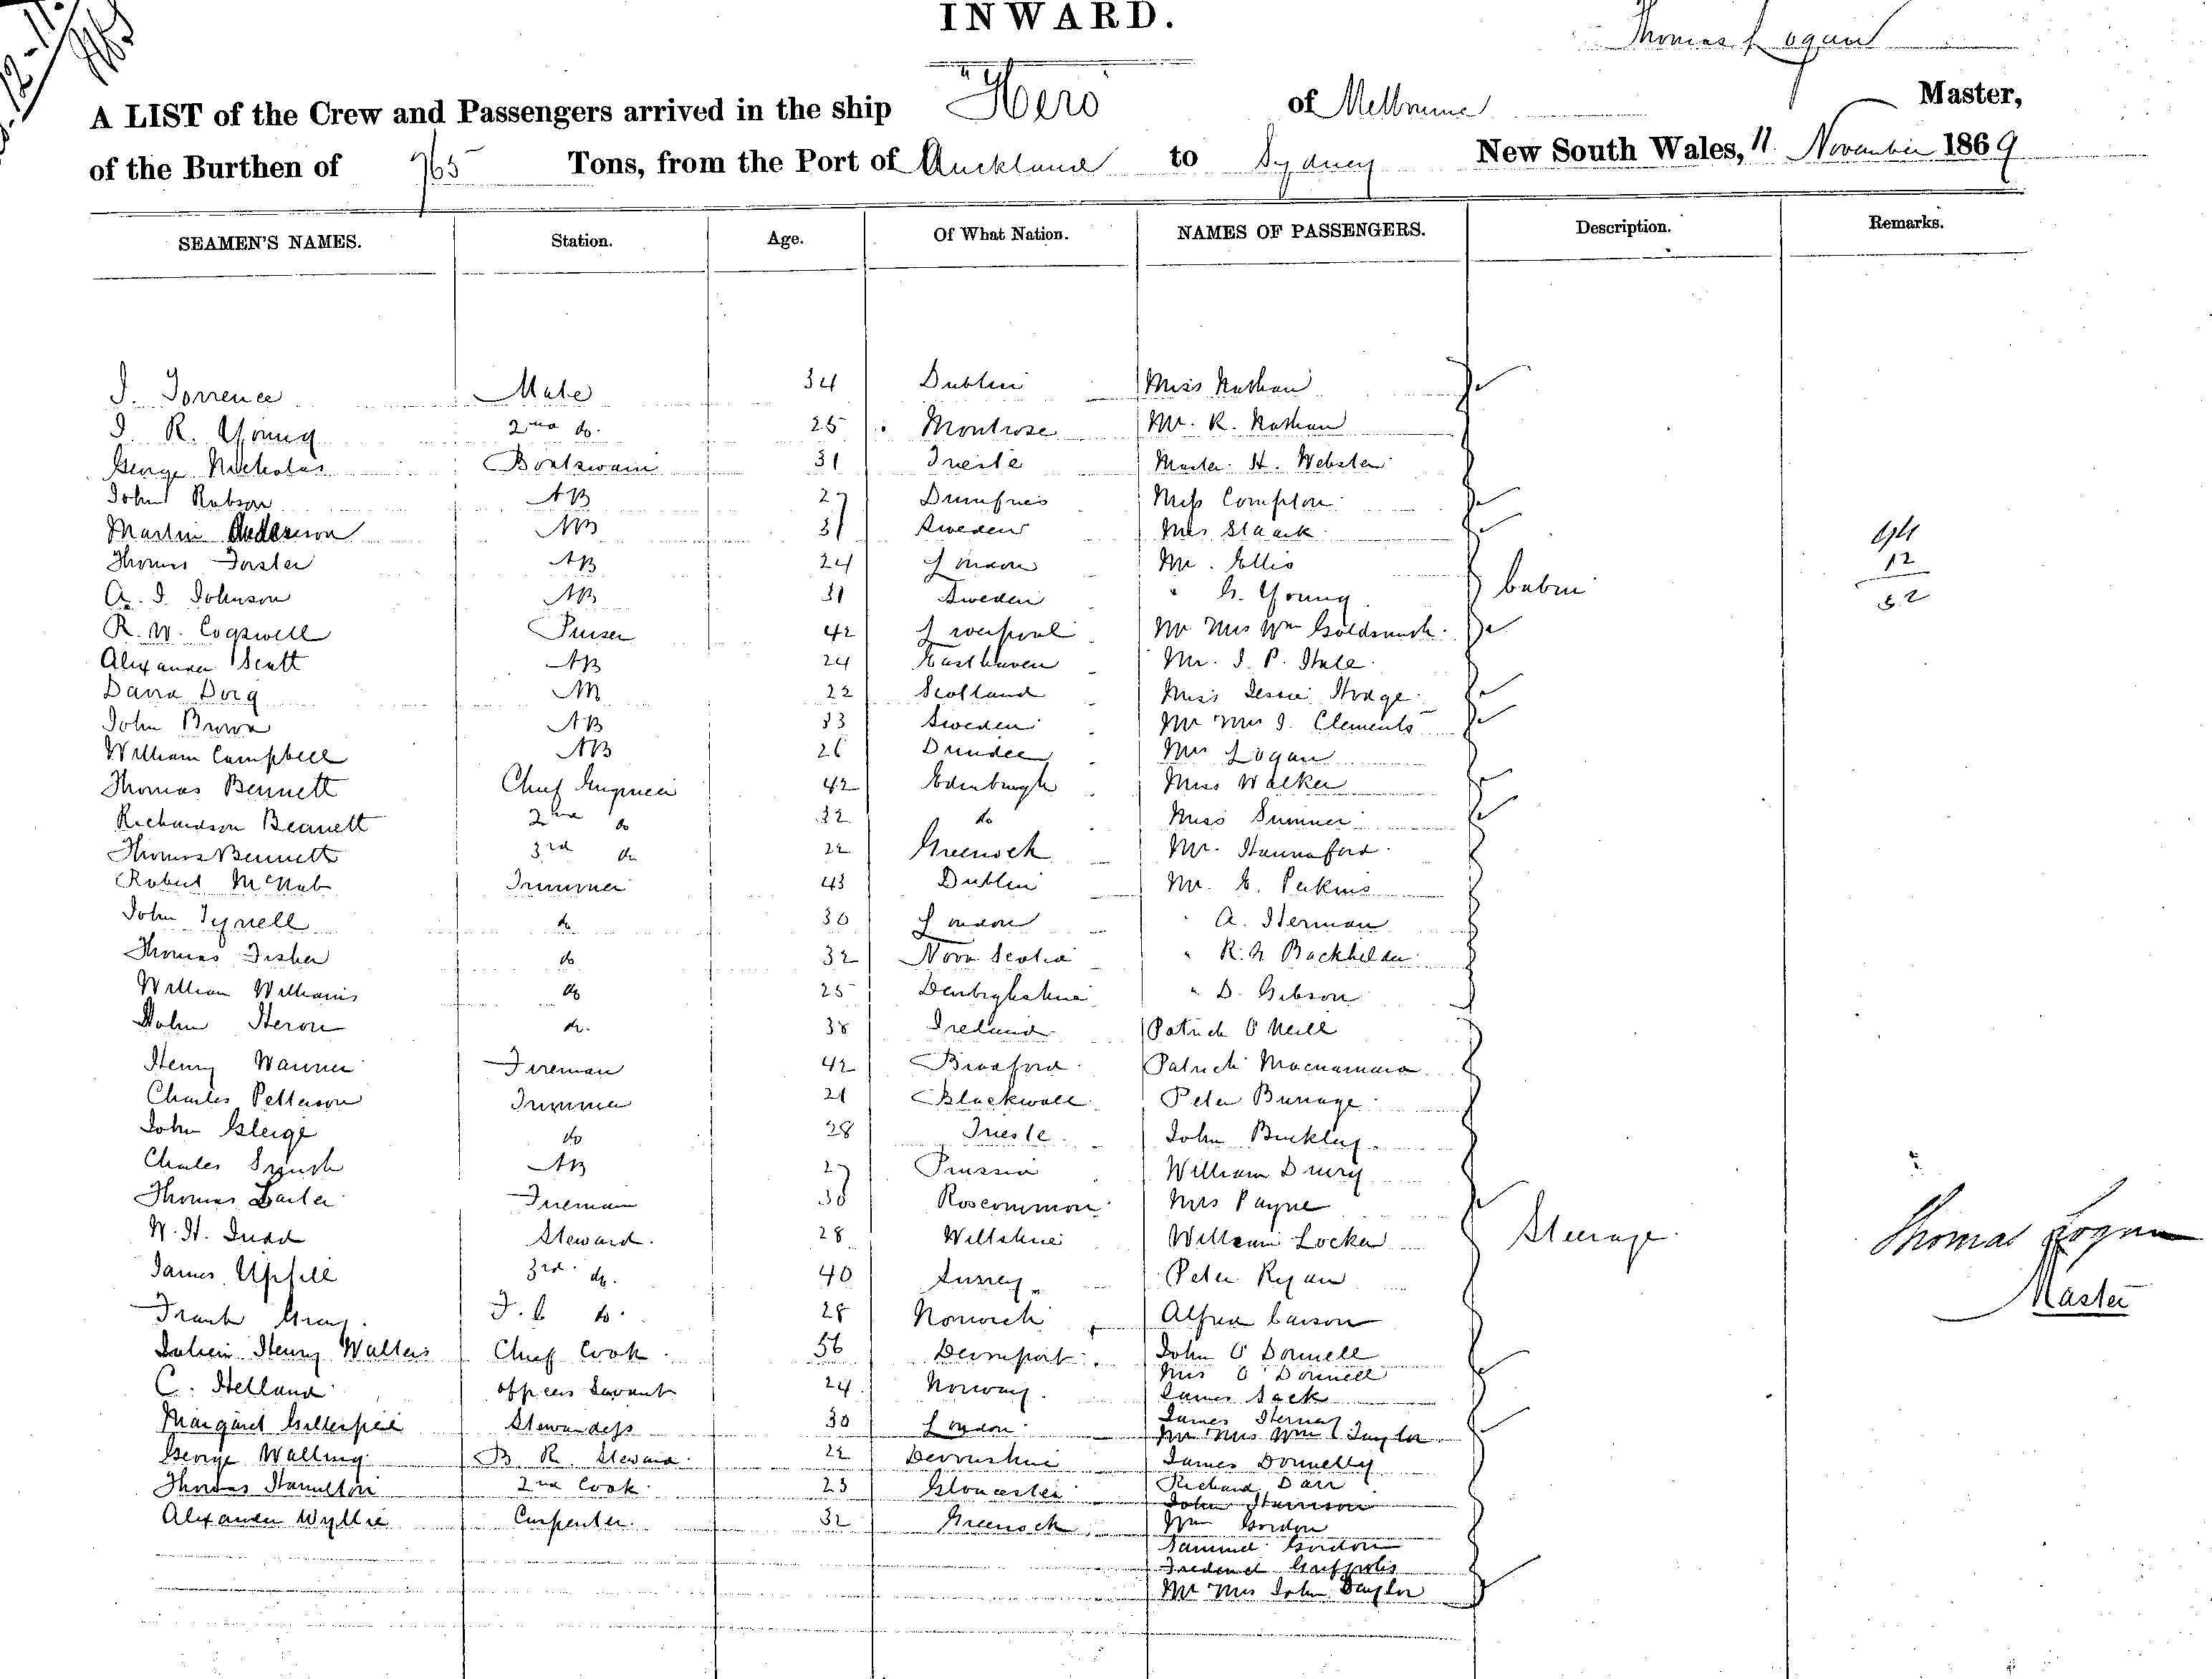 INWARD.
Thomas Logan
A LIST of the Crew and Passengers arrived in the ship "Hero of Melbourne Master,
of the Burthen of 765 Tons, from the Port of Auckland to Sydney New South Wales, 11 November 1869
SEAMEN'S NAMES. Station. Age. Of What Nation. NAMES OF PASSENGERS. Description. Remarks.
J. Torrence Mate 34 Dublin Miss Nathan
J. R. Young 2nd do. 25 Montrose Mr. R. Nathan
George Nicholas Boatswain 31 Trieste Master H. Webster
John Robson AB 27 Dumfries Miss Compton
Martin Anderson AB 31 Sweden Mrs Staack
Thomas Forster AB 24 London Mr. Ellis
A. J. Johnson AB 31 Sweden " G. Young Cabin 12
R. W. Cogswell Purser 42 Liverpool Mr Mrs Wm Goldsmith 52
Alexander Scott AB 24 Easthaven Mr. J. P. Hale
David Dorg 22 Scotland Miss Jessie Hodge
John Brown AB 33 Sweden Mr Mrs J. Clements
William Campbell AB 26 Dundee Mrs Logan
Thomas Bennett Chief Engineer 42 Edinburgh Miss Walker
Richardson Bennett 2nd do 32 do Miss Sumner
Thomas Bennett 3rd do 22 Greenock Mr. Hannaford
Robert McNab Trimmer 43 Dublin Mr. E. Perkins
John Tyrell do 30 London " A. Herman
Thomas Fisher do 32 Nova Scotia " R. N.
William Williams do 25 Denbighshire " D. Gibson
John Heron do. 38 Ireland Patrick O'Neill
Henry Warner Fireman 42 Bradford Patrick Macnamara
Charles Petterson Trimmer 21 Blackwall Peter Burrage
John Gleige do 28 Trieste John Buckley
Charles AB 27 Prussia William Drury
Thomas Fireman 38 Roscommon Mrs Payne
W. H. Judd Steward. 28 Wiltshire William Locker Steerage Thomas Logan
James Upfill 3rd do. 40 Surrey Peter Ryan Master
Frank Gray. do. 28 Norwich Alfred Carson
Henry Walters Chief Cook 56 Devonport John O'Donnell
Mrs O'Donnell
C. Helland officers Servant 24 Norway James Sack
James
Margaret Gillespie Stewardess 30 London Mr Mrs Wm Taylor
George Walling B. R. Steward 22 Devonshire James Donnelly
Thomas Hamilton 2nd Cook 23 Gloucester Richard Darr
John Harrison
Alexander Wyllie Carpenter. 32 Greenock Wm Gordon
Sammuel Gordon
Frederick
Mr Mrs John Taylor